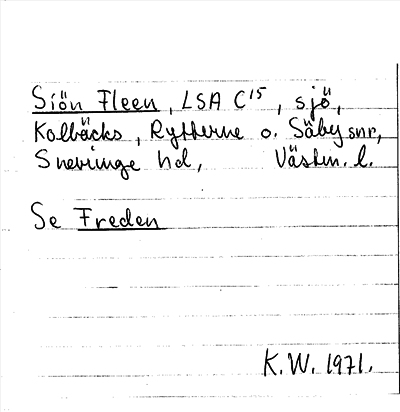 Siön Fleen, LSA C15, sjö,
Kolbäcks, Rytterne o. Säby snr,
Snevinge hd, Västm. l.
Se Freden
K.W. 1971.